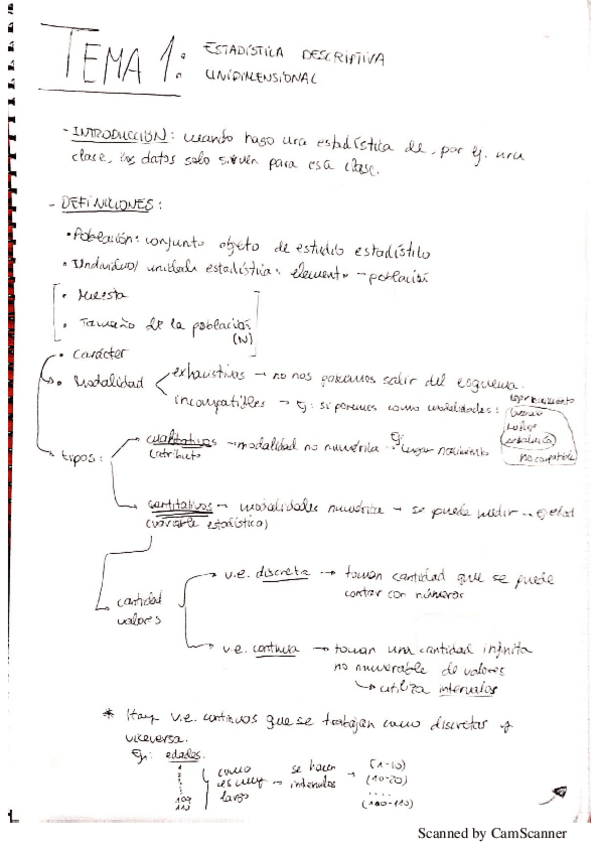 TEMA 1: ESTADÍSTICA DESCRIPTIVA
UNIDIMENSIONAL
- INTRODUCCIÓN: cuando hago una estadística de, por ej. una
clase, los datos solo sirven para esa clase.
- DEFINICIONES:
• Población: conjunto objeto de estudio estadístico
• Individuo/ unidad estadística: elemento → población
• Muestra
• Tamaño de la población
(N)
• Carácter
• Modalidad
exhaustivas → no nos podemos salir del esquema.
incompatibles → Ej: si ponemos como modalidades:
no compatible
tipos:
cualitativos → modalidad no numérica → Ej: lugar nacimiento
(atributo
cantitativos → modalidades numérica → se puede medir → ej edad
(variable estadística)
cantidad
valores
v.e. discreta → toman cantidad que se puede
contar con números
v.e. continua → toman una cantidad infinita
no numerable de valores
utiliza intervalos
* Hay v.e. continuas que se trabajan como discretas y
viceversa.
Ej: edades.
1
109
110
como es muy largo → se hacen intervalos →
(1-10)
(10-20)
....
(100-110)
Scanned by CamScanner